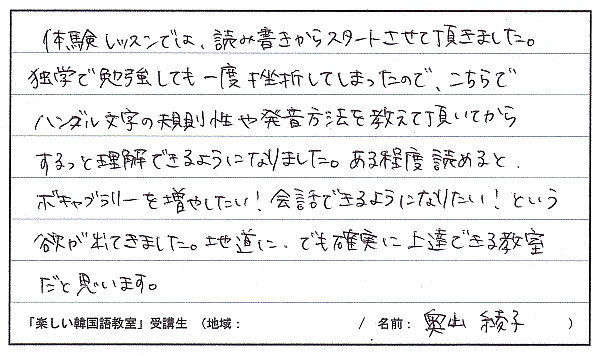 体験レッスンでは、読み書きからスタートさせて頂きました。
独学で勉強しても一度挫折してしまったので、こちらで
ハングル文字の規則性や発音方法を教えて頂いてから
するっと理解できるようになりました。ある程度読めると、
ボキャブラリーを増やしたい！会話できるようになりたい！という
欲が出てきました。地道に、でも確実に上達できる教室
だと思います。
「楽しい韓国語教室」受講生 （地域： / 名前： 奥山 綾子 ）